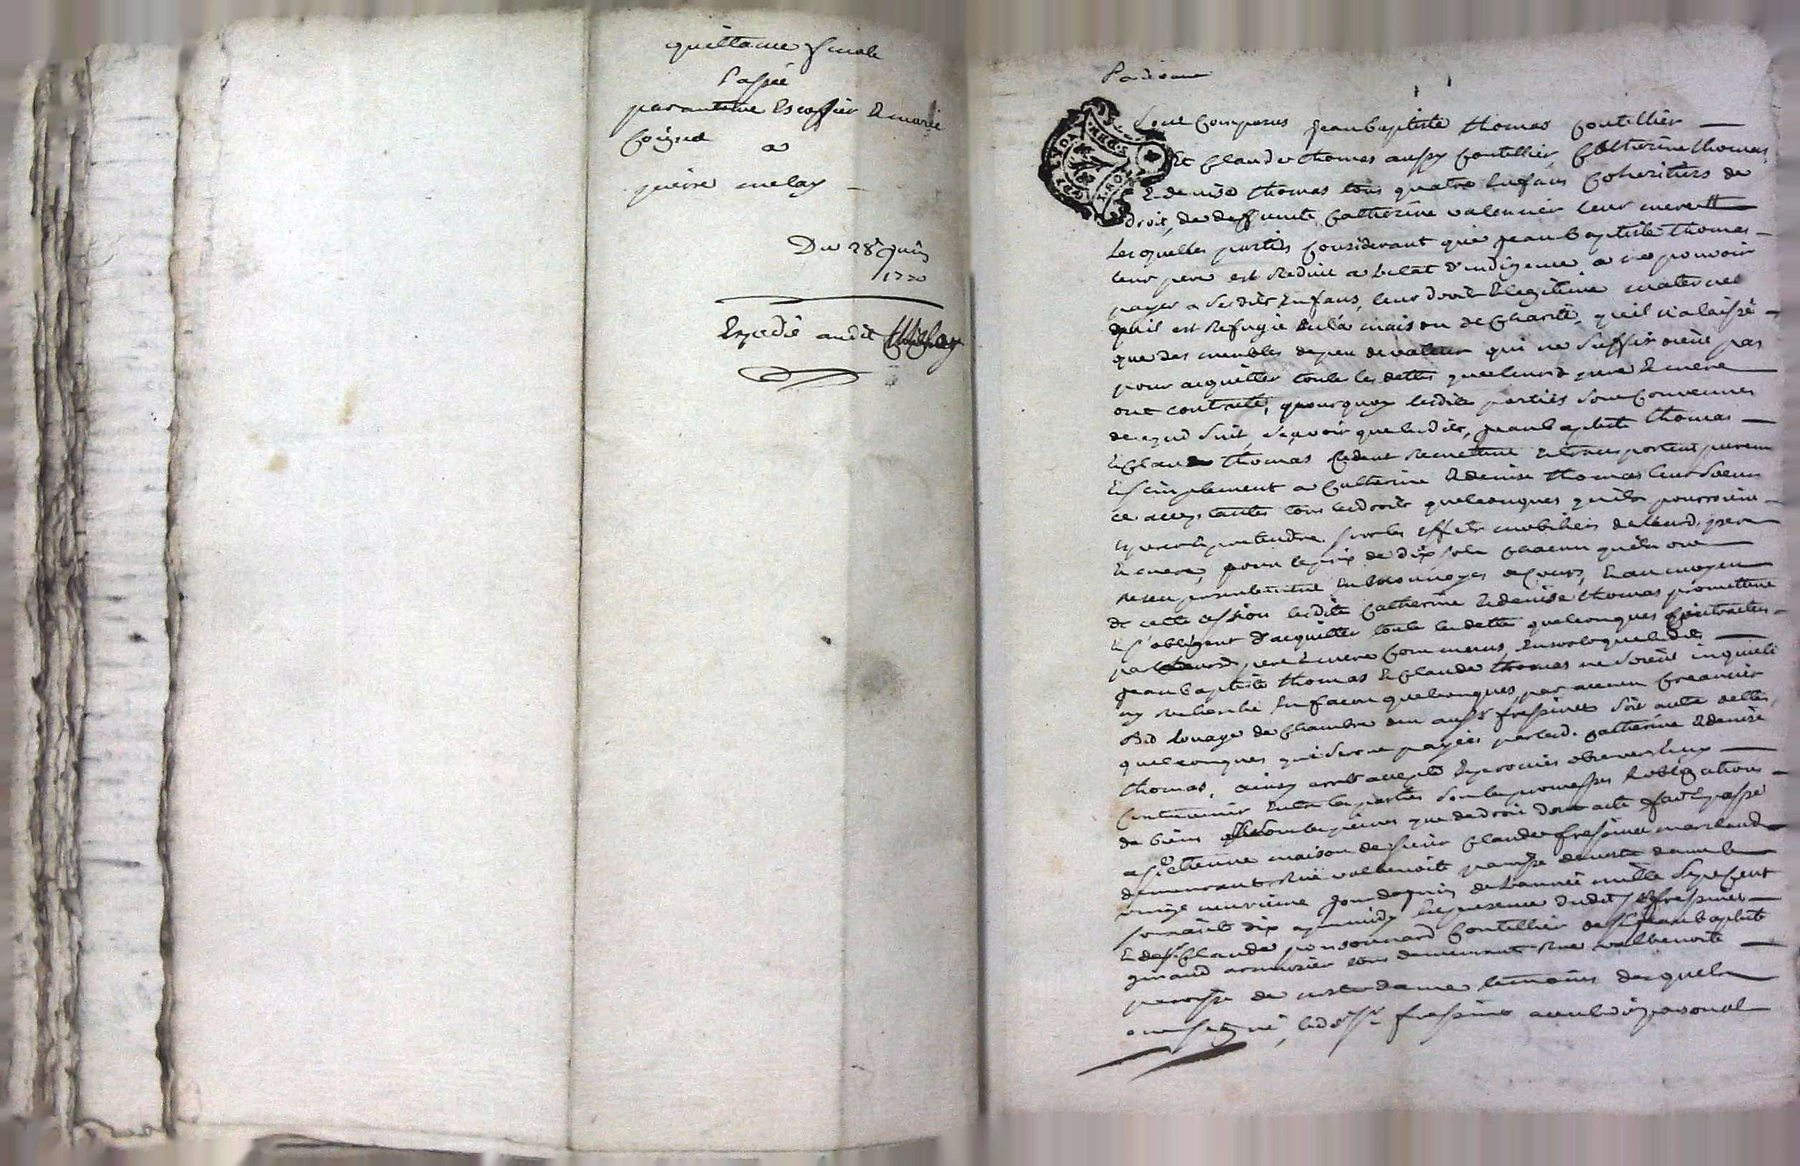 quittance finale
passée
par antoine Escoffier & marie
Coignet
a
pierre melay
Du 28e juin
1770
Expedié audit Melay
Pardevant
Sont Comparus Jean baptiste thomas Coutellier
Et Claude thomas aussy Coutellier, Catherine thomas
& denise thomas tous quatre Enfans Coheritiers de
droit, de deffunte Catherine valencier leur mere
Lesquelles parties Considerant que Jean baptiste thomas
leur pere est Reduit a letat d'indigence a ne pouvoir
payer a sesdits Enfans, leur droit & legitime maternel
quil est Refugié En la maison de Charité, quil n'a laissé
que des meubles de peu de valleur qui ne suffiroient pas
pour acquitter toute les dettes que leursd pere & mere
ont contracté, pourquoy lesdite parties sont Convenues
de ce qui suit, sçavoir que lesdits, Jean baptiste thomas
& Claude thomas Cedent Remettent & transportent purem
& simplement a Catherine & denise thomas leur soeurs
ce acceptantes tous les droits quelconques quils pourroient
avoir & pretendre sur les effets mobiliers de leursd. pere
& mere, pour le prix de dix sols Chacun quils ont
Receu presentement En monnoyes de Cours, & au moyen
de cette cession lesdite Catherine & denise thomas promettent
& s'obligent d'acquitter toute les dette quelconques Contractées
par leursd pere & mere Communs, Ensorte que lesdits
Jean baptiste thomas & Claude thomas ne soient inquieté
ny Recherché En facon quelconques par aucun Creancier
louage de Chambre deu au sr fressinet soit autre dettes
quelconques qui seront payées par lesd. Catherine & denise
thomas, ainsy arreté accepté & promis observer & ny
Contrevenir Entre les parties sous les promesses & obligations
de biens sous les peines que de droit dont acte fait & passé
a st etienne maison de sieur Claude fressinet marchand
demeurant Rue valbenoite paroisse de notre dame le
vingt neuvieme Jour de juin de l'année mille sept Cent
soixante dix apmidy En presence dudit sr fressinet
& de sr Claude ponsonnard Coutellier de sr Jean baptiste
giraud armurier tous demeurant Rue valbenoite
paroisse de notre dame temoins desquels
ont signé, led. sr fressinet avec led. sr ponsonnard